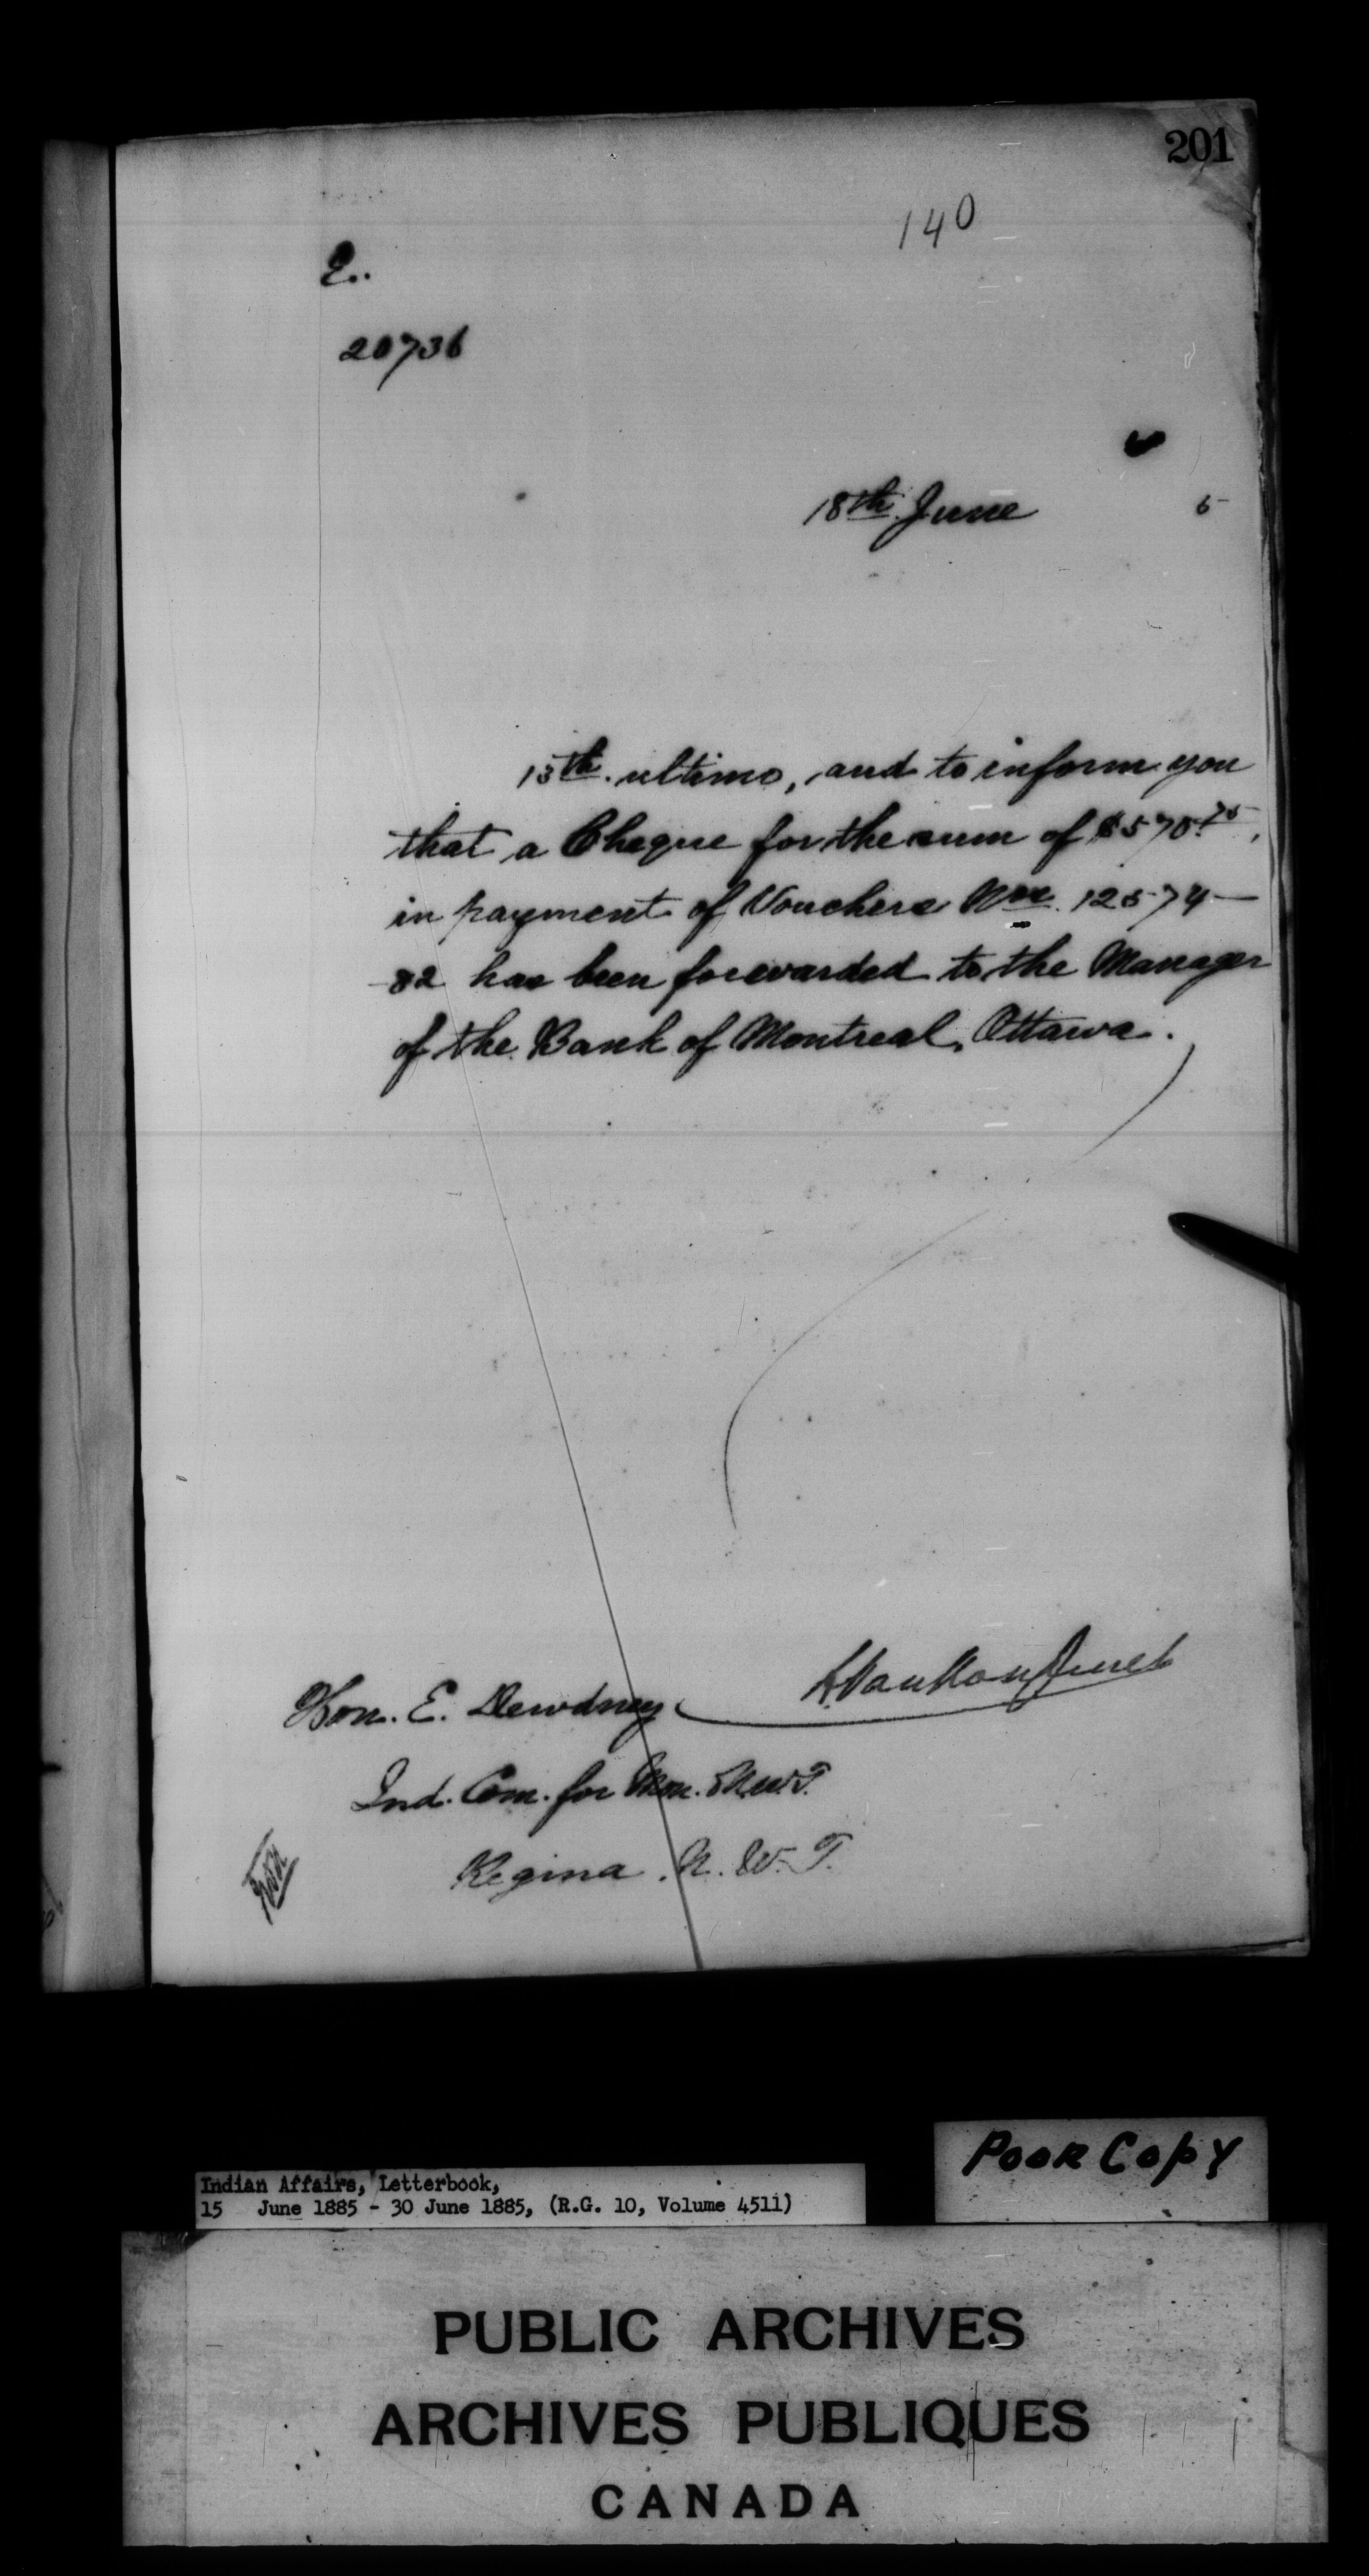 201
140
20736
18th June 5
15th ultimo, and to inform you
that a Cheque for the sum of $570.75,
in payment of Vouchers Nos. 12574 -
82 has been forwarded to the Manager
of the Bank of Montreal, Ottawa.
L. VanKoughnet
Hon. E. Dewdney
Ind. Com. for Man. & N.W.T.
Regina, N. W. T.
Poor Copy
Indian Affairs, Letterbook,
15 June 1885 - 30 June 1885, (R.G. 10, Volume 4511)
PUBLIC ARCHIVES
ARCHIVES PUBLIQUES
CANADA